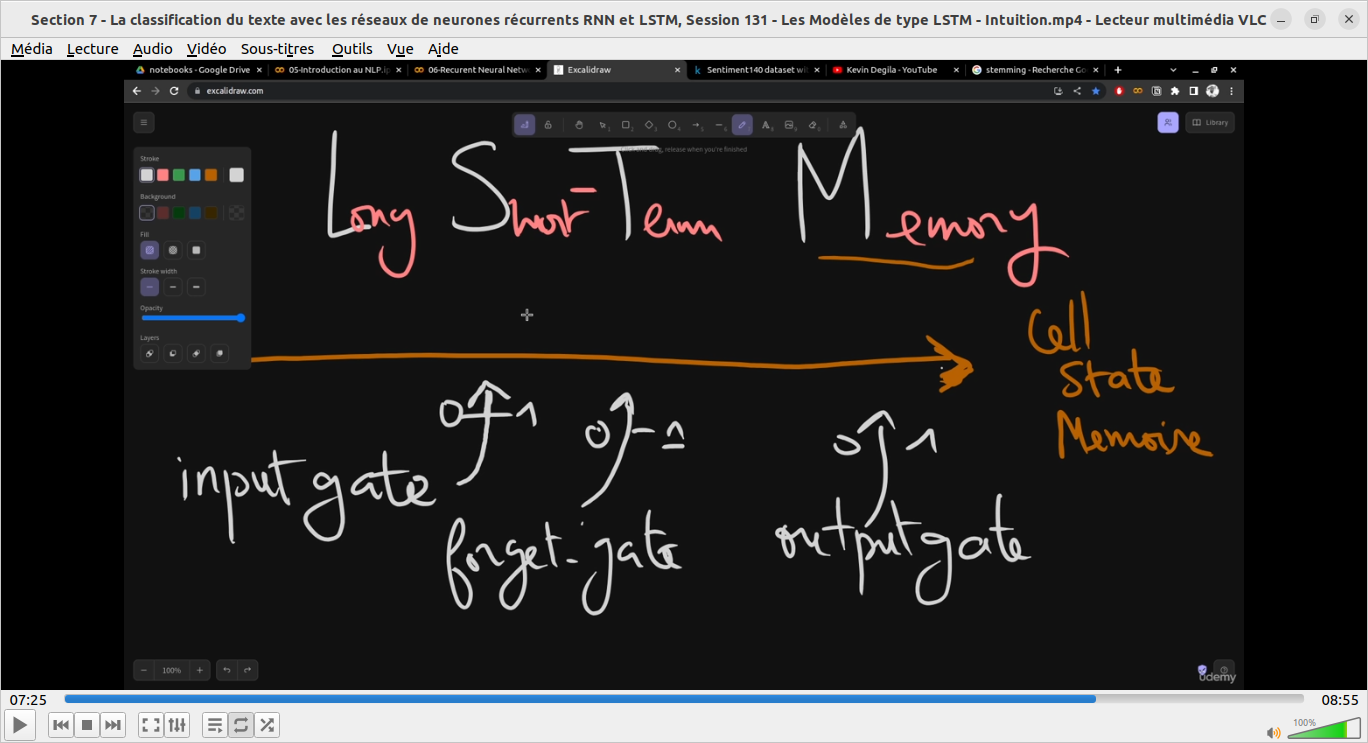 Section 7 - La classification du texte avec les réseaux de neurones récurrents RNN et LSTM, Session 131 - Les Modèles de type LSTM - Intuition.mp4 - Lecteur multimédia VLC
Média Lecture Audio Vidéo Sous-titres Outils Vue Aide
notebooks - Google Drive 05-Introduction au NLP.ip 06-Recurent Neural Netw Excalidraw Sentiment140 dataset wi Kevin Degila - YouTube stemming - Recherche Go
excalidraw.com
Library
release when you're finished
Stroke
Background
Fill
Stroke width
Opacity
Layers
Long Short-Term Memory
Cell
State
Memoire
0 1
0 - 1
0 1
input gate
forget-gate
output gate
100%
udemy
07:25 08:55
100%